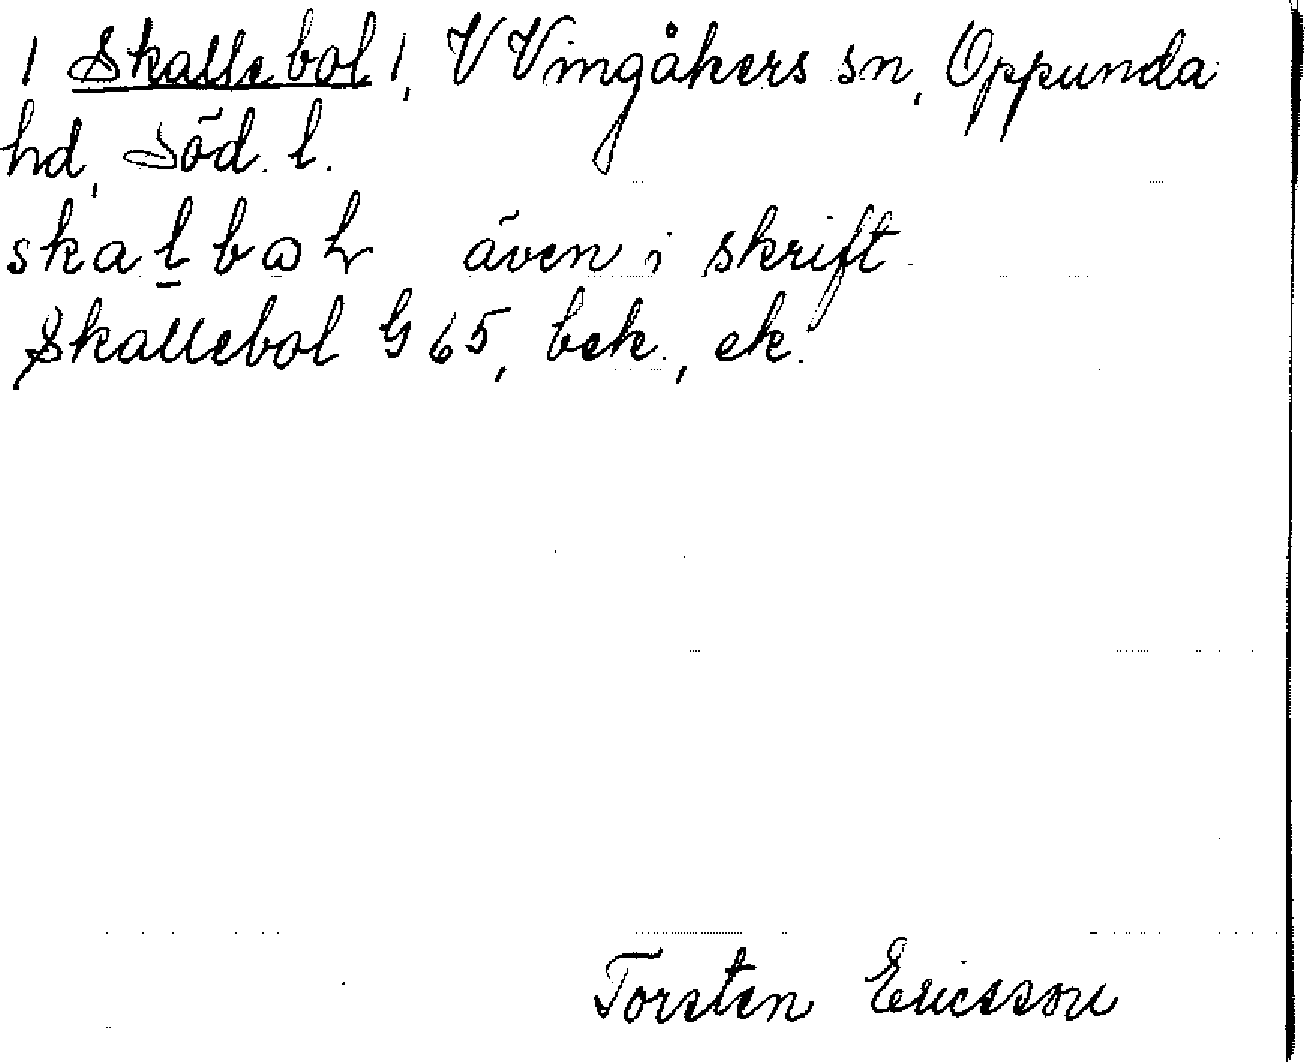 / Skallebol /, V Vingåkers sn, Oppunda
hd, Söd. l.
även i skrift
Skallebol G 65, bek., ek.
Torsten Ericsson